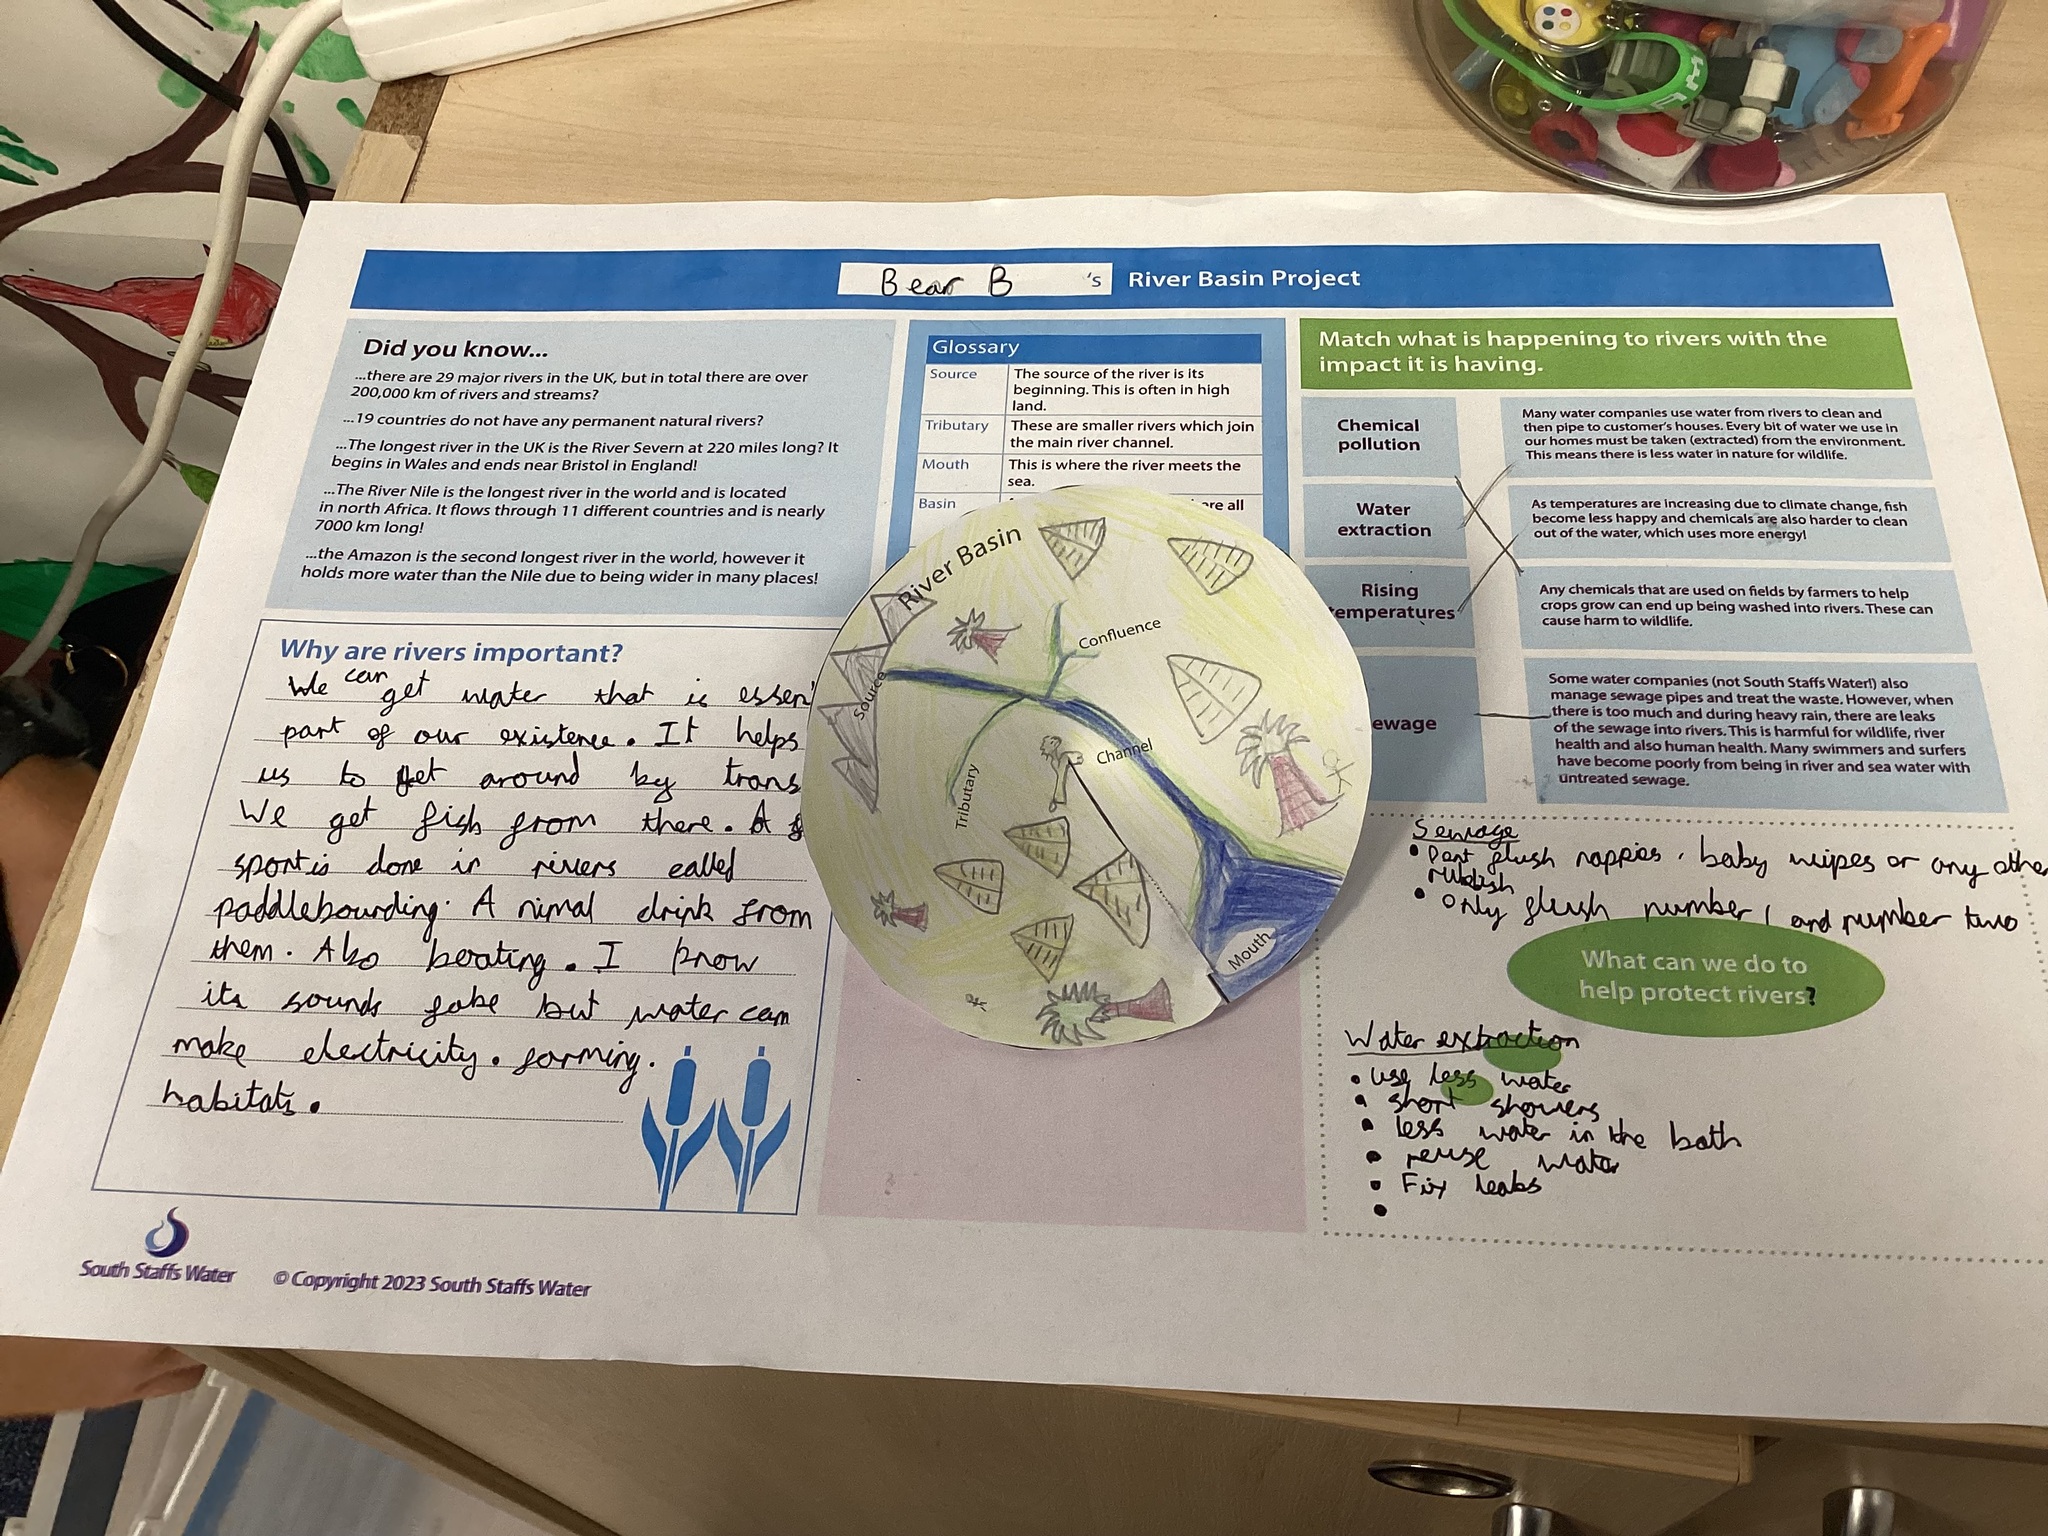 Bear B 's River Basin Project
Did you know...
...there are 29 major rivers in the UK, but in total there are over
200,000 km of rivers and streams?
...19 countries do not have any permanent natural rivers?
...The longest river in the UK is the River Severn at 220 miles long? It
begins in Wales and ends near Bristol in England!
...The River Nile is the longest river in the world and is located
in north Africa. It flows through 11 different countries and is nearly
7000 km long!
...the Amazon is the second longest river in the world, however it
holds more water than the Nile due to being wider in many places!
Why are rivers important?
We can get water that is essen
part of our existence. It helps
us to get around by trans
We get fish from there. A
sport is done in rivers called
paddlebourding. A nimal drink from
them. Also boating. I know
its sounds fake but water can
make electricity. farming.
habitats.
South Staffs Water
© Copyright 2023 South Staffs Water
Glossary
Source
The source of the river is its
beginning. This is often in high
land.
Tributary
These are smaller rivers which join
the main river channel.
Mouth
This is where the river meets the
sea.
Basin
ere all
River Basin
Source
Confluence
Channel
Tributary
Mouth
Match what is happening to rivers with the
impact it is having.
Chemical
pollution
Water
extraction
Rising
temperatures
ewage
Many water companies use water from rivers to clean and
then pipe to customer's houses. Every bit of water we use in
our homes must be taken (extracted) from the environment.
This means there is less water in nature for wildlife.
As temperatures are increasing due to climate change, fish
become less happy and chemicals are also harder to clean
out of the water, which uses more energy!
Any chemicals that are used on fields by farmers to help
crops grow can end up being washed into rivers. These can
cause harm to wildlife.
Some water companies (not South Staffs Water!) also
manage sewage pipes and treat the waste. However, when
there is too much and during heavy rain, there are leaks
of the sewage into rivers. This is harmful for wildlife, river
health and also human health. Many swimmers and surfers
have become poorly from being in river and sea water with
untreated sewage.
Sewage
• Dont flush nappies, baby wipes or any other
rubbish
• Only flush number 1 and number two
What can we do to
help protect rivers?
Water extraction
• use less water
• short showers
• less water in the bath
• reuse water
• Fix leaks
•